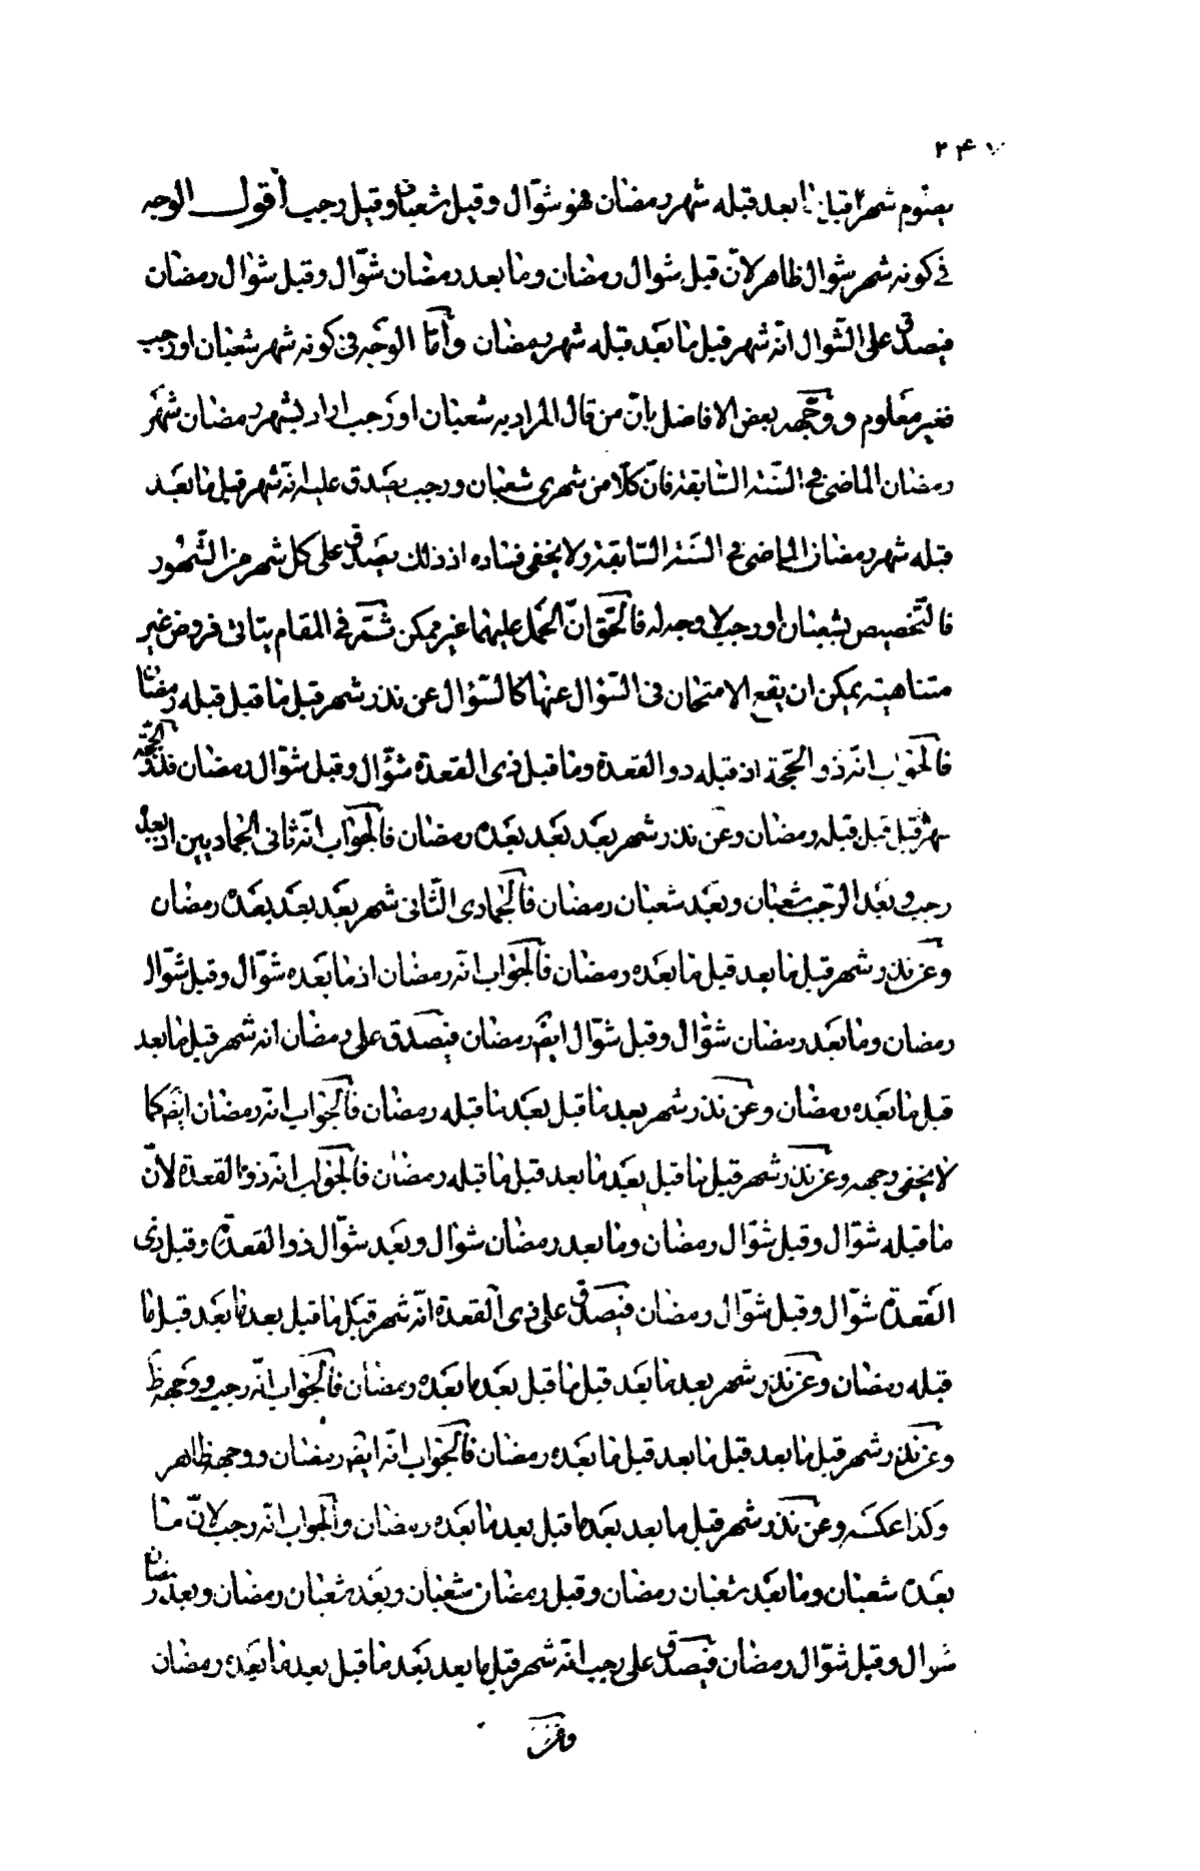 ۲۴۷
بصوم شهرا قبل ما بعد قبله شهر رمضان فهو شوّال وقيل شعبان وقيل رجب أقول الوجه
فى كونه شهر شوال ظاهر لانّ قبل شوال رمضان وما بعد رمضان شوّال وقبل شوال رمضان
فيصدق على الشوال انّه شهر قبل ما بعد قبله شهر رمضان وأمّا الوجه فى كونه شهر شعبان او رجب
فغير معلوم ووجّهه بعض الافاضل بانّ من قال المراد به شعبان او رجب اراد بشهر رمضان شهر
رمضان الماضى فى السّنة السّابقة فانّ كلّا من شهرى شعبان ورجب يصدق عليه انّه شهر قبل ما بعد
قبله شهر رمضان الماضى فى السّنة السّابقة ولا يخفى فساده اذ ذلك يصدق على كل شهر من الشّهور
فالتّخصيص بشعبان او رجب لا وجه له فالحقّ انّ الحمل عليهما غير ممكن ثمّ فى المقام يتاتى فروض غير
متناهية يمكن ان يقع الامتحان فى السّؤال عنها كالسّؤال عن نذر شهر قبل ما قبل قبله رمضان
فالجواب انّه ذو الحّجة اذ قبله ذو القعدة وما قبل ذى القعدة شوّال وقبل شوّال رمضان فذو الحجّة
شهر قبل قبل قبله رمضان وعن نذر شهر بعد بعد بعده رمضان فالجواب انّه ثانى الجماديين اذ بعده
رجب وبعد الرّجب شعبان وبعد شعبان رمضان فالجمادى الثّانى شهر بعد بعد بعده رمضان
وعن نذر شهر قبل ما بعد قبل ما بعده رمضان فالجواب انّه رمضان اذ ما بعده شوّال وقبل شوّال
رمضان وما بعد رمضان شوّال وقبل شوّال ايضا رمضان فيصدق على رمضان انه شهر قبل ما بعد
قبل ما بعده رمضان وعن نذر شهر بعد ما قبل بعد ما قبله رمضان فالجواب انّه رمضان ايضا كما
لا يخفى وجهه وعن نذر شهر قبل ما قبل بعد ما بعد قبل ما قبله رمضان فالجواب انّه ذو القعدة لانّ
ما قبله شوّال وقبل شوّال رمضان وما بعد رمضان شوال وبعد شوّال ذو القعدة وقبل ذى
القعدة شوّال وقبل شوّال رمضان فيصدق على ذى القعدة انّه شهر قبل ما قبل بعد ما بعد قبل ما
قبله رمضان وعن نذر شهر بعد ما بعد قبل ما قبل بعد ما بعده رمضان فالجواب انّه رجب ووجهه ظ
وعن نذر شهر قبل ما بعد قبل ما بعد قبل ما بعده رمضان فالجواب انّه ايضا رمضان ووجهه ظاهر
وكذا عكسه وعن نذر شهر قبل ما بعد بعد ما قبل بعد ما بعده رمضان والجواب انّه رجب لانّ ما
بعده شعبان وما بعد شعبان رمضان وقبل رمضان شعبان وبعد شعبان رمضان وبعد رمضان
شوال وقبل شوّال رمضان فيصدق على رجب انّه شهر قبل ما بعد بعد ما قبل بعد ما بعده رمضان